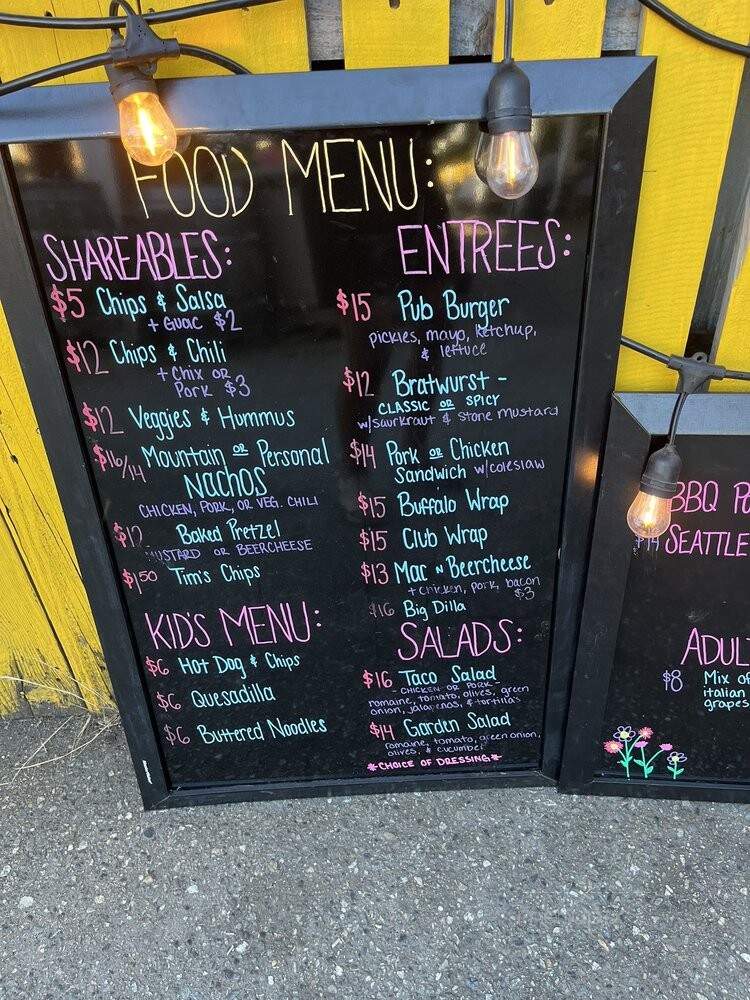 FOOD MENU:
SHAREABLES:
$5 Chips & Salsa
+ Guac $2
$12 Chips & Chili
+ Chix OR
Pork $3
$12 Veggies & Hummus
$16/14 Mountain OR Personal
Nachos
CHICKEN, PORK, OR VEG. CHILI
$12 Baked Pretzel
MUSTARD OR BEERCHEESE
$1.50 Tim's Chips
KID'S MENU:
$6 Hot Dog & Chips
$6 Quesadilla
$6 Buttered Noodles
ENTREES:
$15 Pub Burger
pickles, mayo, ketchup,
& lettuce
$12 Bratwurst -
CLASSIC OR SPICY
w/ saurkraut & stone mustard
$14 Pork OR Chicken
Sandwich w/ coleslaw
$15 Buffalo Wrap
$15 Club Wrap
$13 Mac N Beercheese
+ chicken, pork, bacon
$3
$16 Big Dilla
SALADS:
$16 Taco Salad
- CHICKEN OR PORK -
romaine, tomato, olives, green
onion, jalapenos, & tortillas
$14 Garden Salad
romaine, tomato, green onion,
olives, & cucumber
*CHOICE OF DRESSING*
BBQ
$14 SEATTLE
ADUL
$8 Mix of
italian
grapes